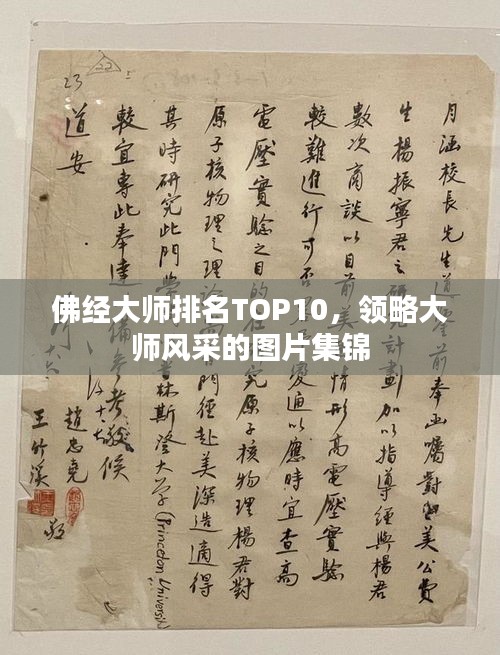 佛经大师排名TOP10，领略大
师风采的图片集锦
22
23
月涵校長先生道鑒前奉函囑對留美公費
生楊振寧君之研究計劃加以指導經與楊君
數次商談以目前美情形高電壓實驗
較難進行可否變通以應時宜查高
電壓實驗之目的在究原子核物理楊君對
原子核物理之理論門徑赴美深造適得
其時研究此門學林斯澄大學(Princeton University)
較宜專此奉達備參考敬候
道安
趙忠堯
王竹溪 敬